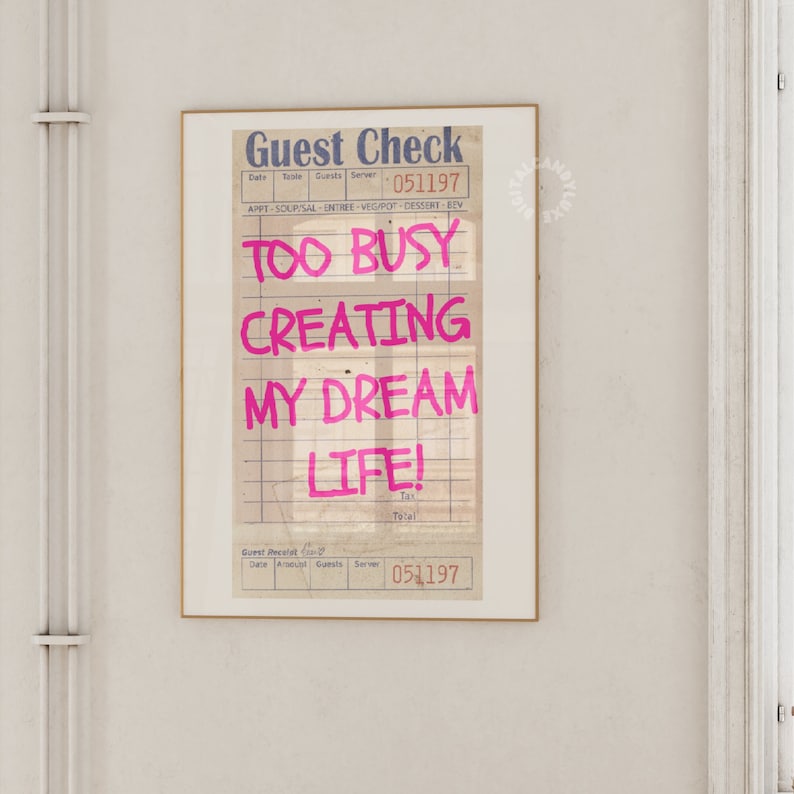 Guest Check
Date Table Guests Server 051197
APPT - SOUP/SAL - ENTREE - VEG/POT - DESSERT - BEV
TOO BUSY
CREATING
MY DREAM
LIFE!
Tax
Total
Guest Receipt
Date Amount Guests Server 051197
DIGITALCANDYLUXE